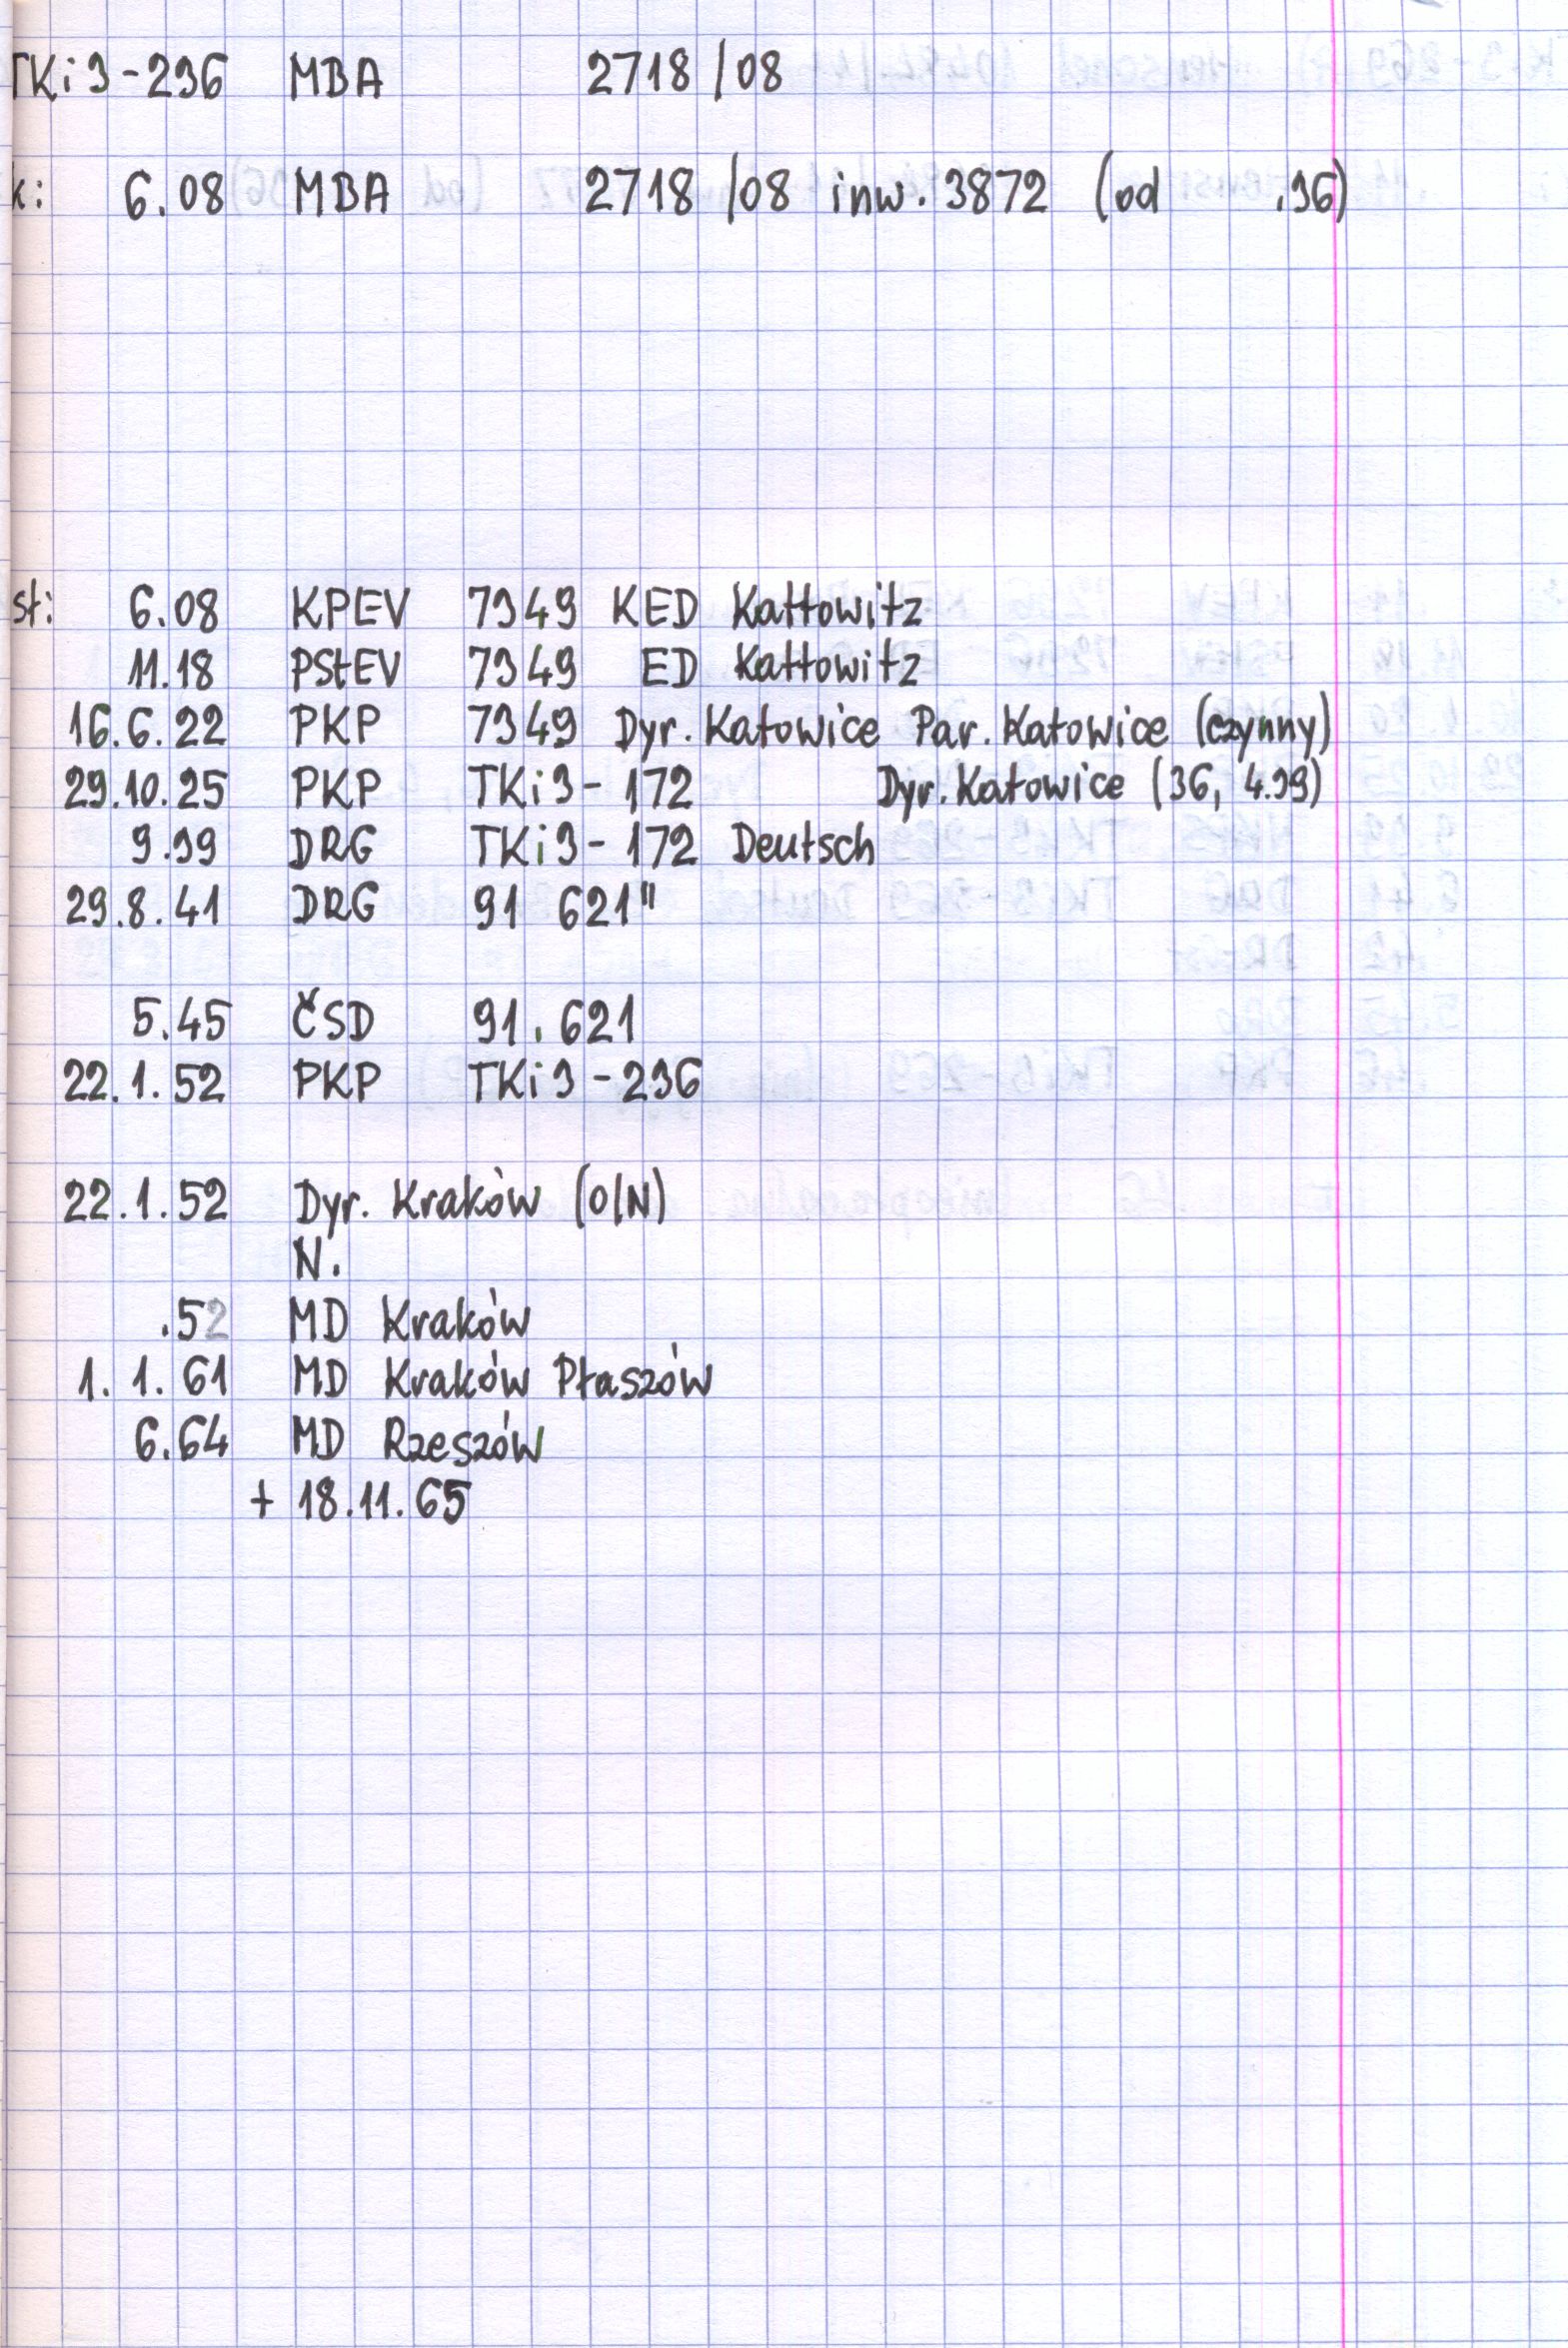 TKi3-236 MBA 2718/08
k: 6.08 MBA 2718/08 inw. 3872 (od .36)
st: 6.08 KPEV 7349 KED Kattowitz
11.18 PStEV 7349 ED Kattowitz
16.6.22 PKP 7349 Dyr. Katowice Par. Katowice (czynny)
29.10.25 PKP TKi3-172 Dyr. Katowice (36, 4.39)
9.39 DRG TKi3-172 Deutsch
29.8.41 DRG 91 621"
5.45 ČSD 91.621
22.1.52 PKP TKi3-236
22.1.52 Dyr. Kraków (O/N)
N.
.52 MD Kraków
1.1.61 MD Kraków Płaszów
6.64 MD Rzeszów
+ 18.11.65